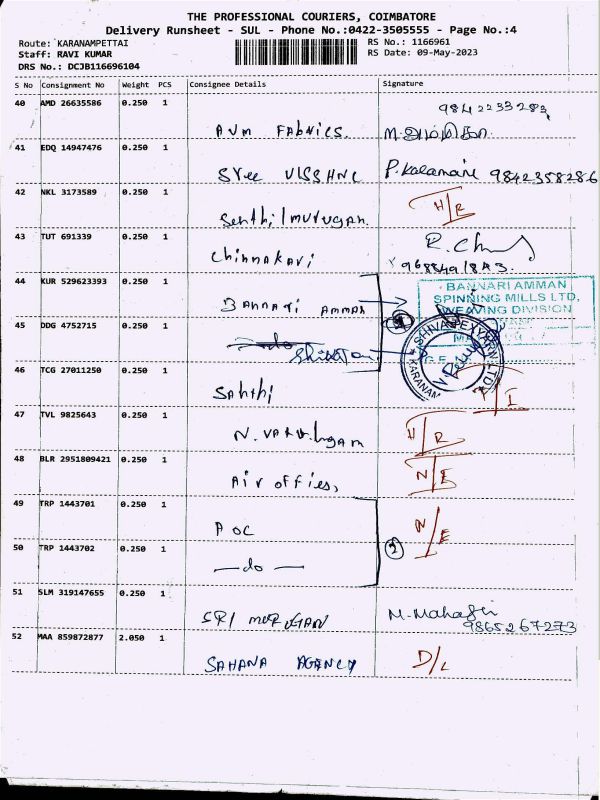 THE PROFESSIONAL COURIERS, COIMBATORE
Delivery Runsheet - SUL - Phone No.:0422-3505555 - Page No.:4
Route: KARANAMPETTAI
RS No.: 1166961
Staff: RAVI KUMAR
RS Date: 09-May-2023
DRS No.: DCJB116696104
S No Consignment No Weight PCS Consignee Details Signature
40 AMD 26635586 0.250 1
9842233283
AVM FABRICS.
41 EDQ 14947476 0.250 1
SREE P. Kalamani 9842358286
42 NKL 3173589 0.250 1
Senthilmurugan H/R
43 TUT 691339 0.250 1
Chinnakavi
44 KUR 529623393 0.250 1
BANNARI AMMAN
SPINNING MILLS LTD,
WEAVING DIVISION
BANNARI AMMAN
45 DDG 4752715 0.250 1
46 TCG 27011250 0.250 1
Sakthi
47 TVL 9825643 0.250 1
H/R
48 BLR 2951809421 0.250 1
N/E
Air offies,
49 TRP 1443701 0.250 1
AOC N/E
50 TRP 1443702 0.250 1
2
—do—
51 SLM 319147655 0.250 1
SRI MURUGAN
9865267273
52 MAA 859872877 2.050 1
SAHANA AGENCY D/L